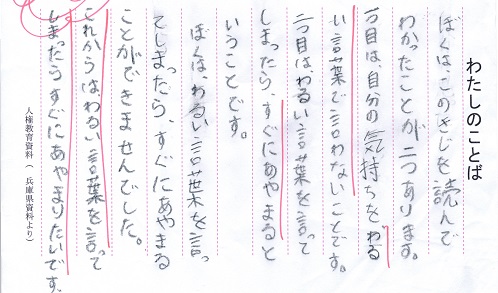 わたしのことば
ぼくは、このきじを読んで
わかったことが二つあります。
一つ目は、自分の気持ちをわる
い言葉で言わないことです。
二つ目はわるい言葉を言って
しまったら、すぐにあやまると
いうことです。
ぼくは、わるい言葉を言っ
てしまったら、すぐにあやまる
ことができませんでした。
これからは、わるい言葉を言って
しまったらすぐにあやまりたいです。
人権教育資料(兵庫県資料より)